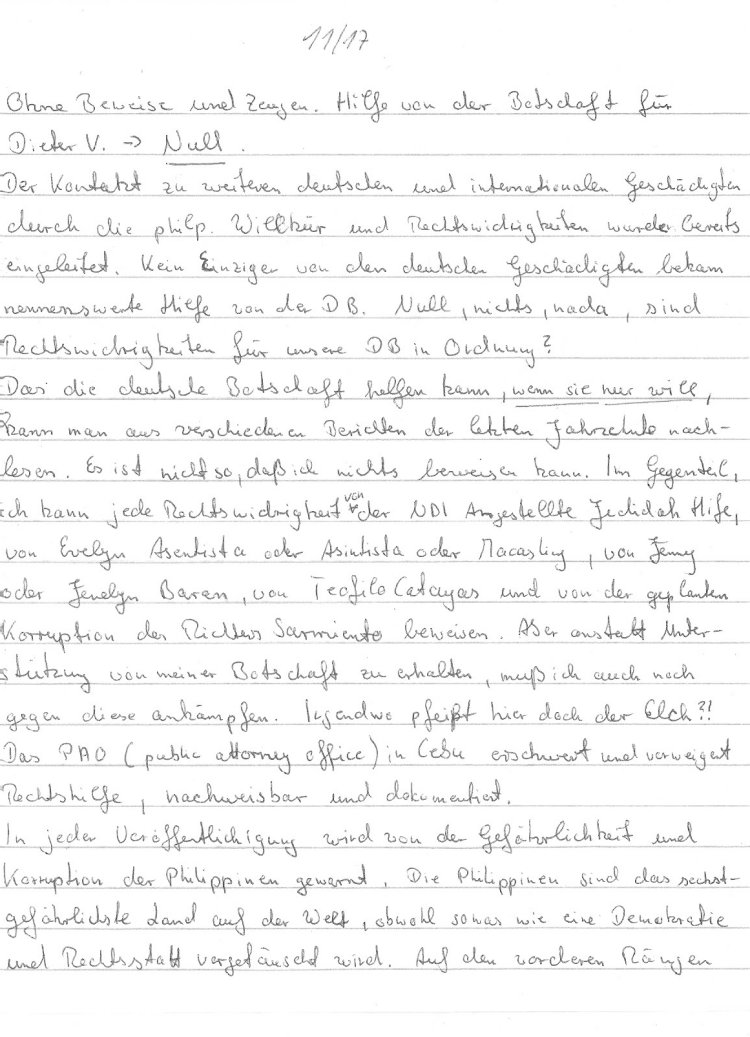 11/17
Ohne Beweise und Zeugen. Hilfe von der Botschaft für
Dieter V. -> Null.
Der Kontakt zu weiteren deutschen und internationalen Geschädigten
durch die philp. Willkür und Rechtswidrigkeiten wurde bereits
eingeleitet. Kein Einziger von den deutschen Geschädigten bekam
nennenswerte Hilfe von der DB. Null, nichts, nada, sind
Rechtswidrigkeiten für unsere DB in Ordnung?
Das die deutsche Botschaft helfen kann, wenn sie nur will,
kann man aus verschiedenen Berichten der letzten Jahrzehnte nach-
lesen. Es ist nicht so, daß ich nichts beweisen kann. Im Gegenteil,
ich kann jede Rechtswidrigkeit von der NDI Angestellte Jedidah Hife,
von Evelyn Asentista oder Asintista oder Macasling, von Jenny
oder Jenelyn Baran, von Teofilo Catayas und von der geplanten
Korruption des Richters Sarmiento beweisen. Aber anstatt Unter-
stützung von meiner Botschaft zu erhalten, muß ich auch noch
gegen diese ankämpfen. Irgendwo pfeift hier doch der Elch?!
Das PAO (public attorney office) in Cebu erschwert und verweigert
Rechtshilfe, nachweisbar und dokumentiert.
In jeder Veröffentlichigung wird von der Gefährlichkeit und
Korruption der Philippinen gewarnt. Die Philippinen sind das sechst-
gefährlichste Land auf der Welt, obwohl sowas wie eine Demokratie
und Rechtsstatt vorgetäuscht wird. Auf den vorderen Rängen